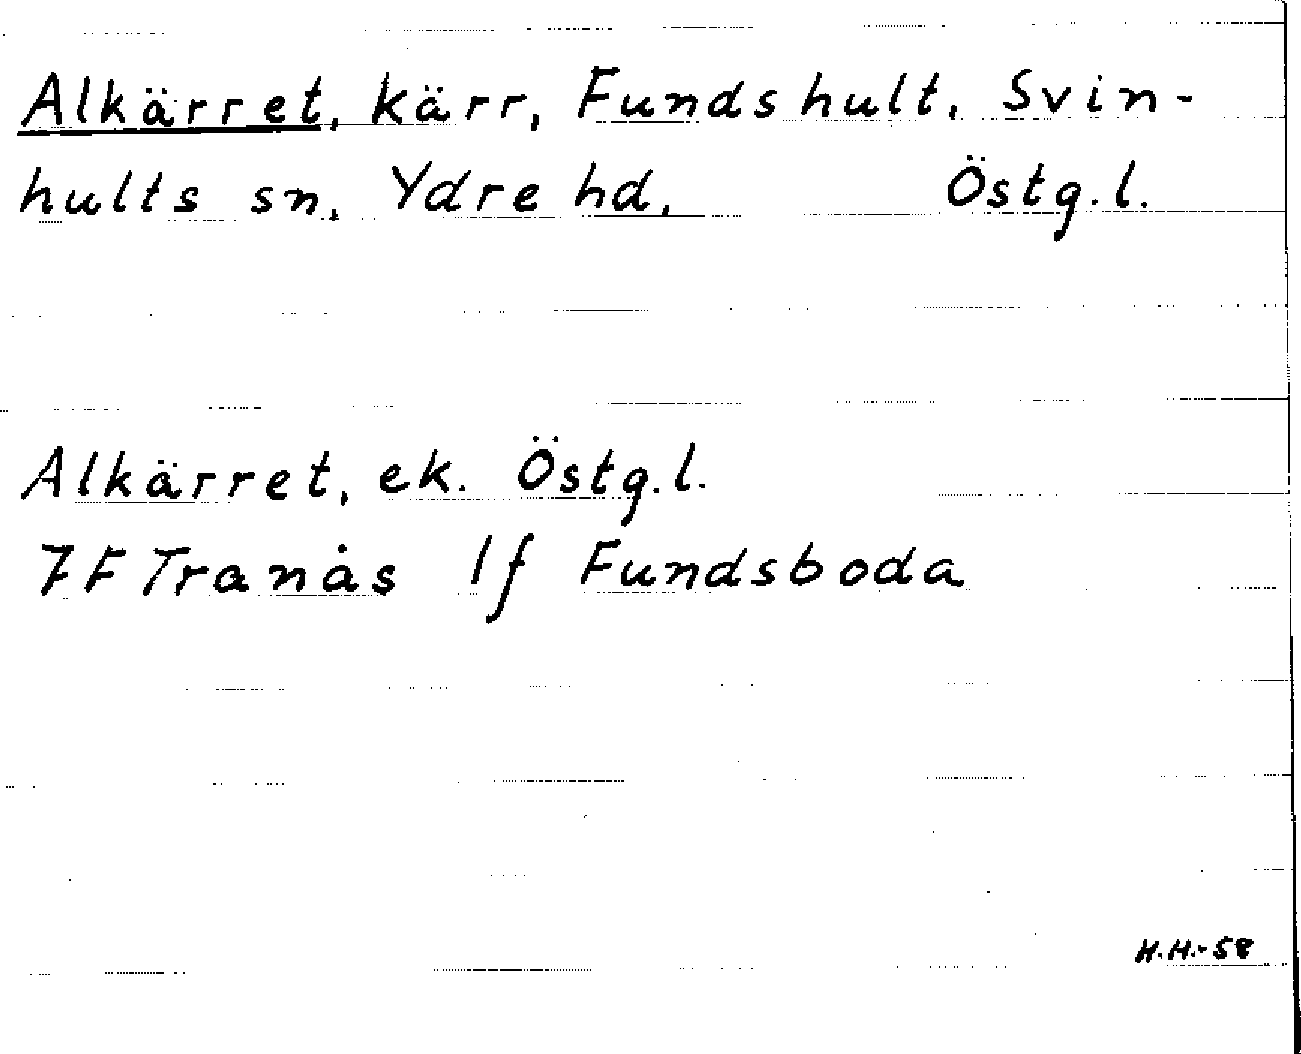 Alkärret, kärr, Fundshult, Svin-
hults sn, Ydre hd, Östg.l.
Alkärret, ek. Östg.l.
7F Tranås 1f Fundsboda
H.H.-58